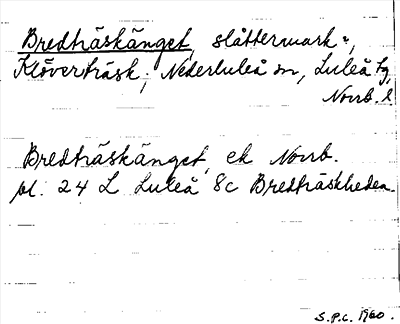 Bredträskänget, slåttermark,
Klöverträsk; Nederluleå sn, Luleå tg,
Norrb. l
Bredträskänget, ek Norrb.
bl. 24 L Luleå 8c Bredträskheden.
S.P.C. 1960.